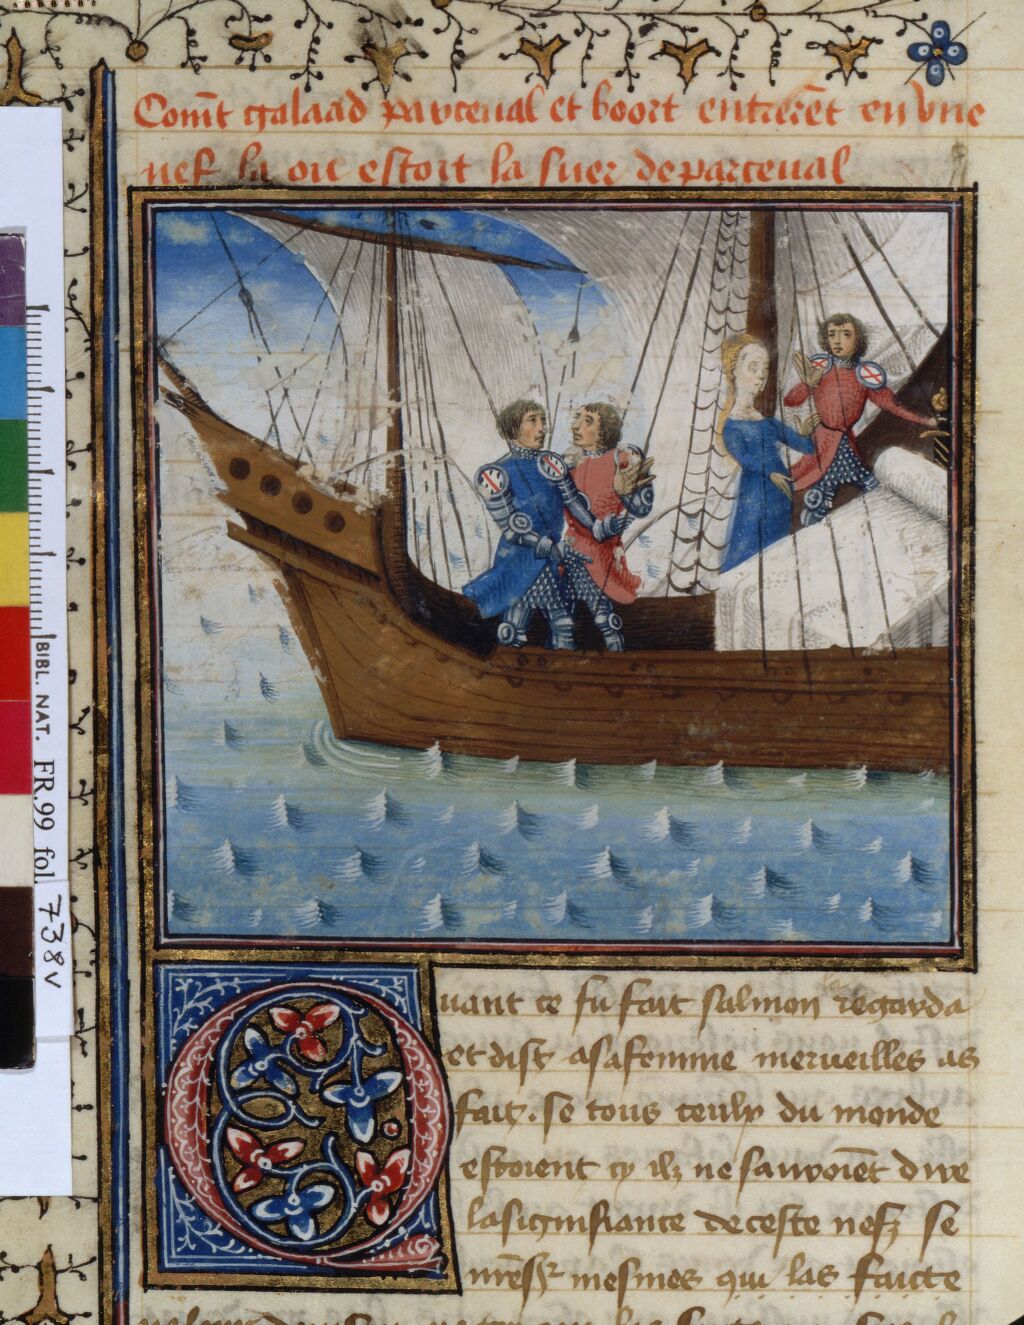 Com̃t galaad parceual et boort entrerẽt en vne
nef la ou estoit la suer de parceual
Quant ce fu fait salmon regarda
et dist a sa femme merueilles as
fait. se tous ceulx du monde
estoient cy ilz ne sauroiẽt dire
la signifiance de ceste nef se
mesmes qui las faicte
BIBL. NAT. FR.99 fol. 738v